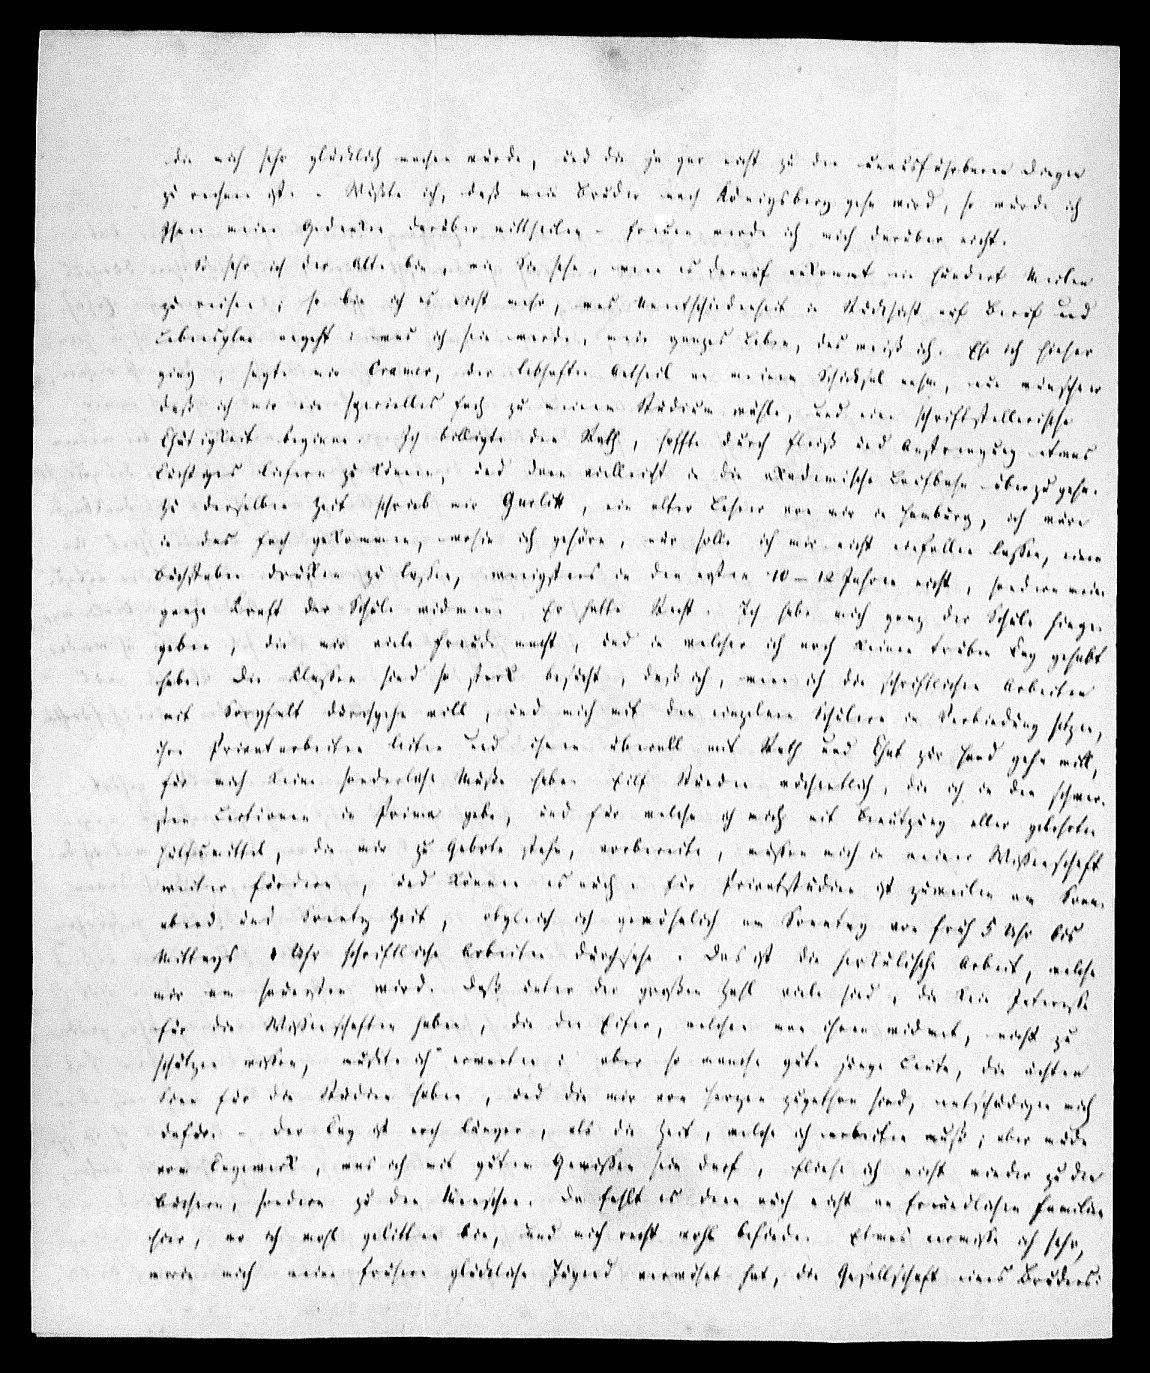 die mich sehr glücklich machen würde, und die ja gar nicht zu den unausführbaren Dingen
zu rechnen ist. Wüßte ich, daß mein Bruder nach Königsberg gehn wird, so würde ich
Ihnen meine Gedanken darüber mittheilen. freuen werde ich mich darüber nicht.
So sehr ich der Alte bin, wie Sie sehn, wenn es darauf ankommt ein hundert Meilen
zu reisen; so bin ich es nicht mehr, was Unentschiedenheit in Rücksicht auf Beruf und
Lebensplan angeht: was ich sein werde, mein ganzes Leben, das weiß ich. Ehe ich hieher
ging, sagte mir Cramer, der lebhaften Antheil an meinem Schicksal nahm, nun wünsche er
daß ich mir ein specielles Fach zu meinem Studium wähle, und eine schriftstellerische
Thätigkeit beginne. Ich billigte den Rath, hoffte durch Fleiß und Anstrengung etwas
Tüchtiges liefern zu können, und dann vielleicht in die akademische Laufbahn überzugehn.
Zu derselben Zeit schrieb mir Gurlitt, ein alter Lehrer von mir in Hamburg, ich wäre
in das Fach gekommen, wohin ich gehöre, nur solle ich mir nicht einfallen lassen, einen
Buchstaben drucken zu lassen, wenigstens in den ersten 10–12 Jahren nicht, sondern meine
ganze Kraft der Schule widmen. Er hatte Recht. Ich habe mich ganz der Schule hinge-
geben, die mir viele Freude macht, und in welcher ich noch keinen trüben Tag gehabt
habe. Die Klassen sind so stark besucht, daß ich, wenn ich die schriftlichen Arbeiten
mit Sorgfalt durchgehn will, und mich mit den einzelnen Schülern in Verbindung setzen,
ihre Privatarbeiten leiten und ihnen überall mit Rath und That zur Hand gehn will,
für mich keine sonderliche Muße habe. Eilf Stunden wöchentlich, die ich in den schwer-
sten Lectionen in Prima gebe, und für welche ich mich mit Benutzung aller gelehrten
Hülfsmittel, die mir zu Gebote stehn, vorbereite, müssen mich in meiner Wissenschaft
weiter fördern, und können es auch. Für Privatstudien ist zuweilen am Sonn-
abend und Sonntag Zeit, obgleich ich gewöhnlich am Sonntag von früh 5 Uhr bis
Mittags 1 Uhr schriftliche Arbeiten durchsehe. Das ist die herkulische Arbeit, welche
mir am sauersten wird. Daß unter der großen Zahl viele sind, die kein Interesse
für die Wissenschaften haben, die den Eifer, welchen man ihnen widmet, nicht zu
schätzen wissen, mußte ich erwarten; aber so manche gute junge Leute, die ächten
Sinn für die Studien haben, und die mir von Herzen zugethan sind, entschädigen mich
dafür. – Der Tag ist noch länger, als die Zeit, welche ich arbeiten muß; aber müde
vom Tagewerk, was ich mit gutem Gewissen sein darf, fliehe ich nicht wieder zu den
Büchern, sondern zu den Menschen. Da fehlt es denn auch nicht an freundlichen Familien
hier, wo ich wohl gelitten bin, und mich recht wohl befinde. Etwas vermisse ich sehr,
woran mich meine frühere glückliche Jugend verwöhnt hat, die Gesellschaft eines Bruders: